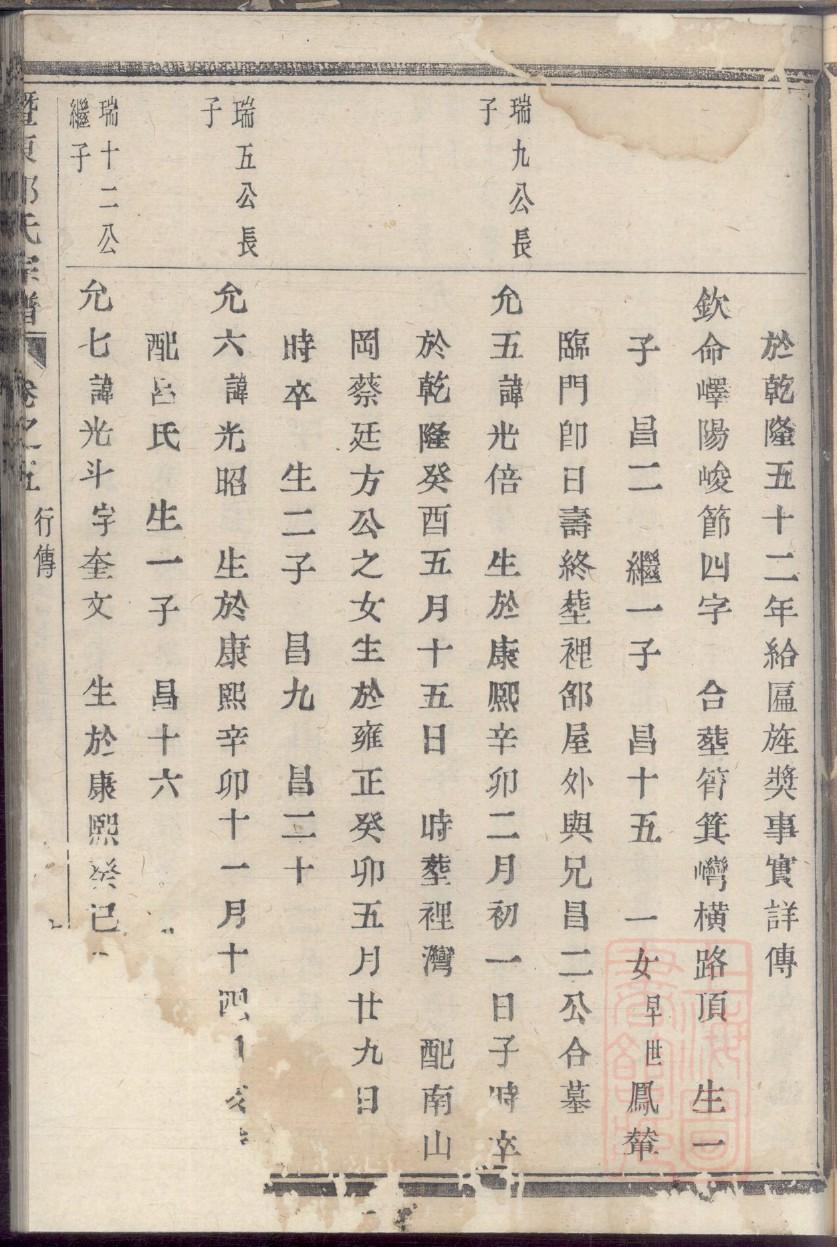 於乾隆五十二年給匾旌奬事實詳傳
欽命嶧陽峻節四字 合塟箵箕灣橫路頂 生一
子 昌二 繼一子 昌十五 一女早世鳳輦
臨門卽日壽終塟裡郃屋外與兄昌二公合墓
瑞九公長
子
允五諱光倍 生於康熙辛卯二月初一日子時卒
於乾隆癸酉五月十五日 時塟裡灣 配南山
岡蔡廷方公之女生於雍正癸卯五月廿九日
時卒 生二子 昌九 昌二十
瑞五公長
子
允六諱光昭 生於康熙辛卯十一月十四
配呂氏 生一子 昌十六
瑞十二公
繼子
允七諱光斗字奎文 生於康熙癸巳
暨東 氏宗譜 卷之五 行傳